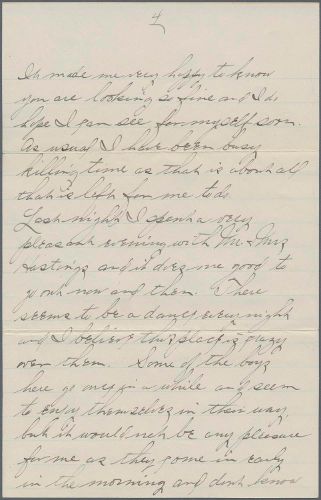 4
It made me very happy to know
you are looking so fine and I do
hope I can see for myself soon.
As usual I have been busy
killing time as that is about all
that is left for me to do.
Last night I spent a very
pleasant evening with Mr & Mrs
Hastings and it does me good to
go out now and then. There
seems to be a dance every night
and I believe this place is crazy
over them. Some of the boys
here go once in a while and seem
to enjoy themselves in their way
but it would not be any pleasure
for me as they come in early
in the morning and dont know